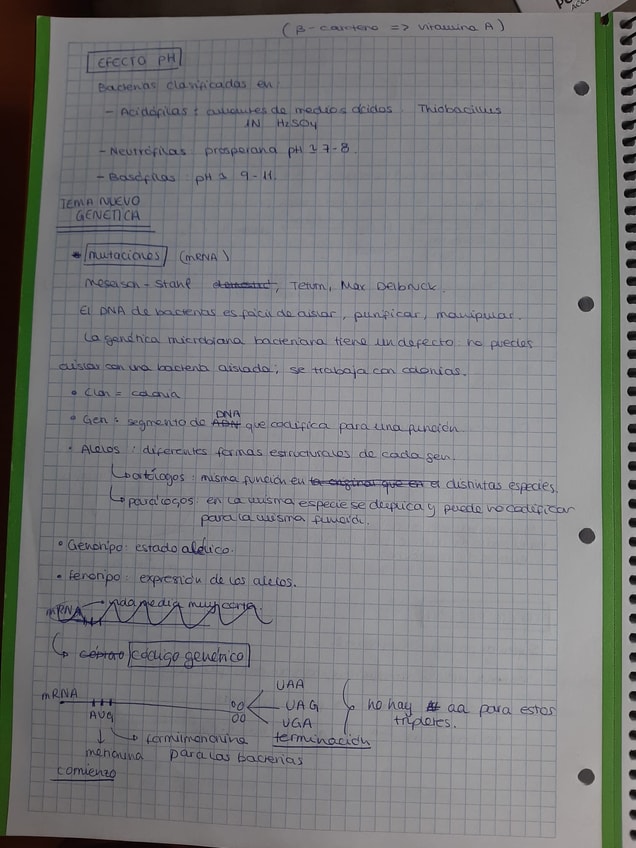 (β-caroteno => vitamina A)
EFECTO PH
Bacterias clasificadas en:
- Acidófilas: amantes de medios ácidos. Thiobacillus
1N H2SO4
- Neutrófilas: prosperan a pH 7-8.
- Basófilas: pH 9-11.
TEMA NUEVO
GENETICA
* mutaciones (mRNA)
Meselson-Stahl, Tetum, Max Delbruck.
El DNA de bacterias es fácil de aislar, purificar, manipular.
La genética microbiana bacteriana tiene un defecto: no puedes
aislar con una bacteria aislada; se trabaja con colonias.
• Clon = colonia
DNA
• Gen: segmento de ADN que codifica para una función.
• Alelos: diferentes formas estructurales de cada gen.
↳ ortólogos: misma función en la original que en el distintas especies.
↳ parálogos: en la misma especie se duplica y puede no codificar
para la misma función.
• Genotipo: estado alélico.
• Fenotipo: expresión de los alelos.
mRNA → vida media muy corta.
↳ código genético
mRNA
UAA
UAG
UGA
no hay aa para estos
tripletes.
AUG
formilmetionina
terminación
metionina para las bacterias
comienzo